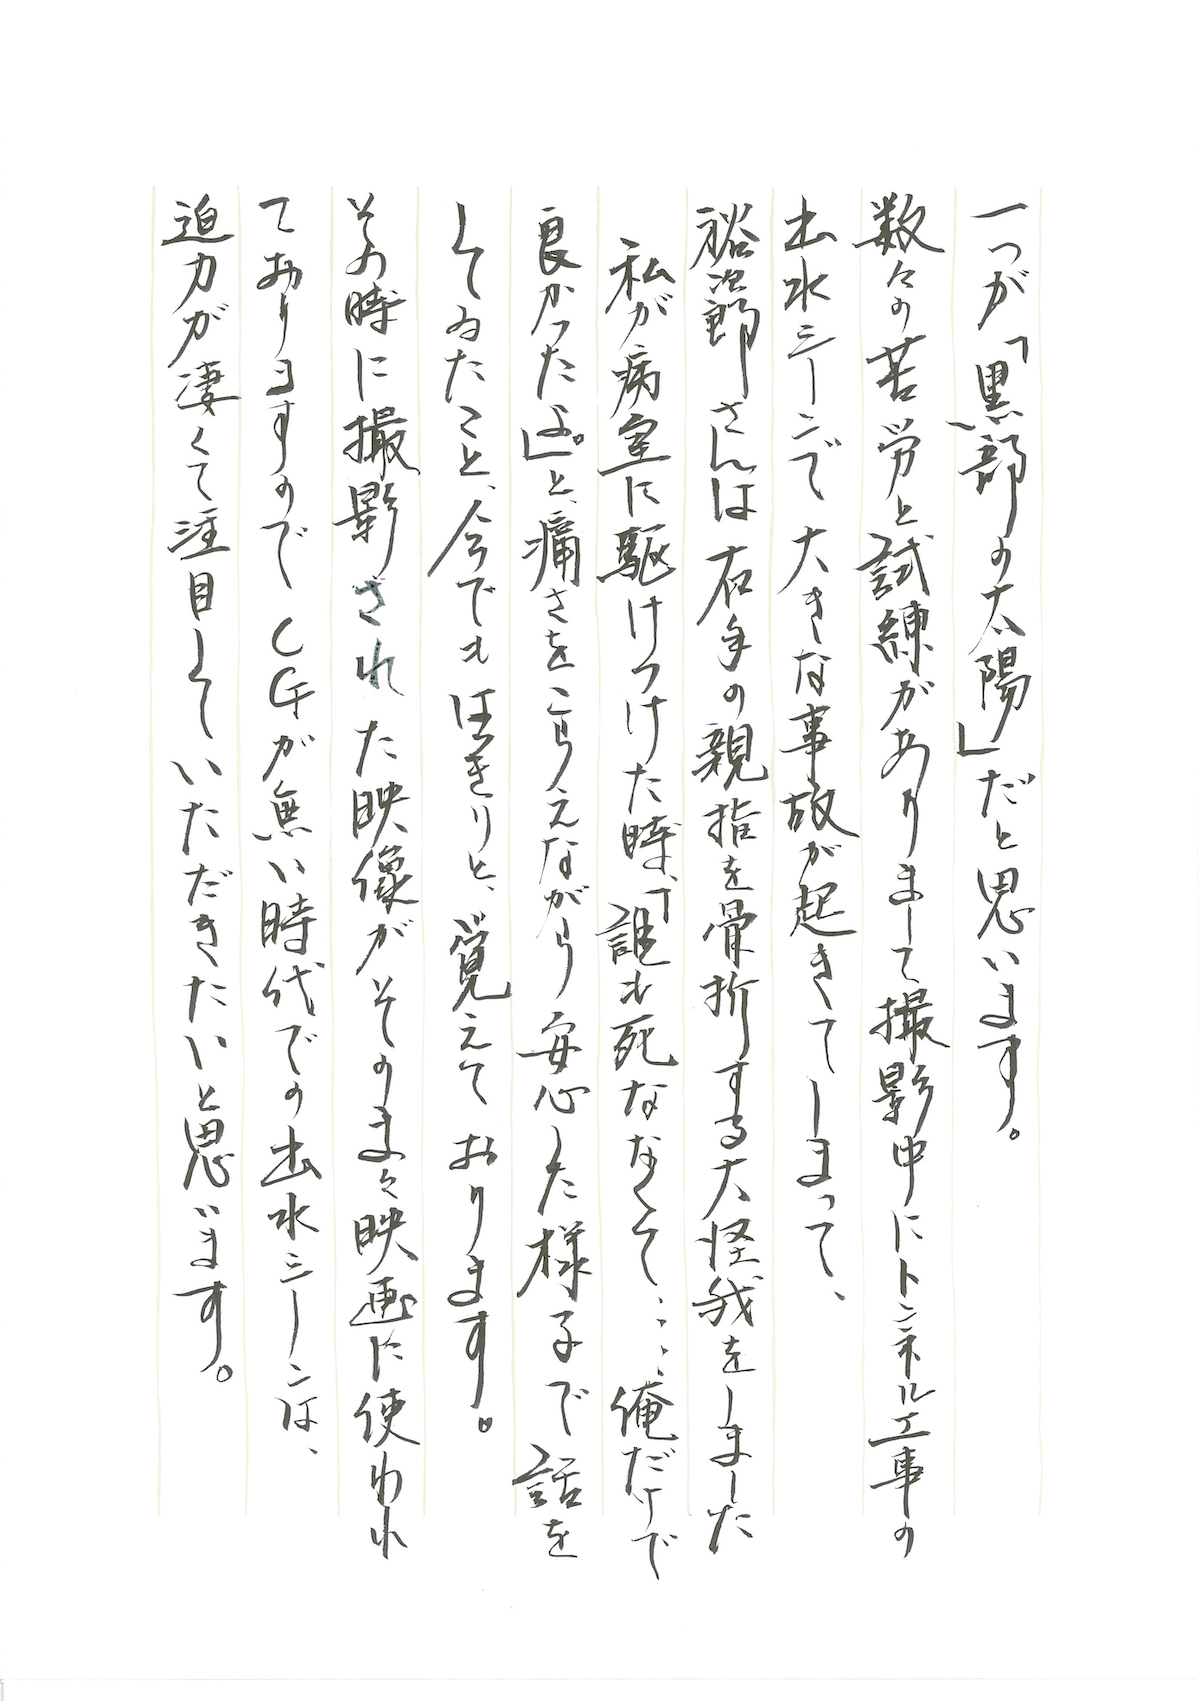 一つが「黒部の太陽」だと思います。
数々の苦労と試練がありまして撮影中にトンネル工事の
出水シーンで大きな事故が起きてしまって、
裕次郎さんは右手の親指を骨折する大怪我をしました
私が病室に駆けつけた時、「誰も死ななくて、‥‥俺だけで
良かったよ。」と、痛さをこらえながら安心した様子で話を
してゐたこと、今でもはっきりと、覚えております。
その時に撮影された映像がそのまゝ映画に使われ
ておりますのでCGが無い時代での出水シーンは、
迫力が凄くて注目していただきたいと思います。